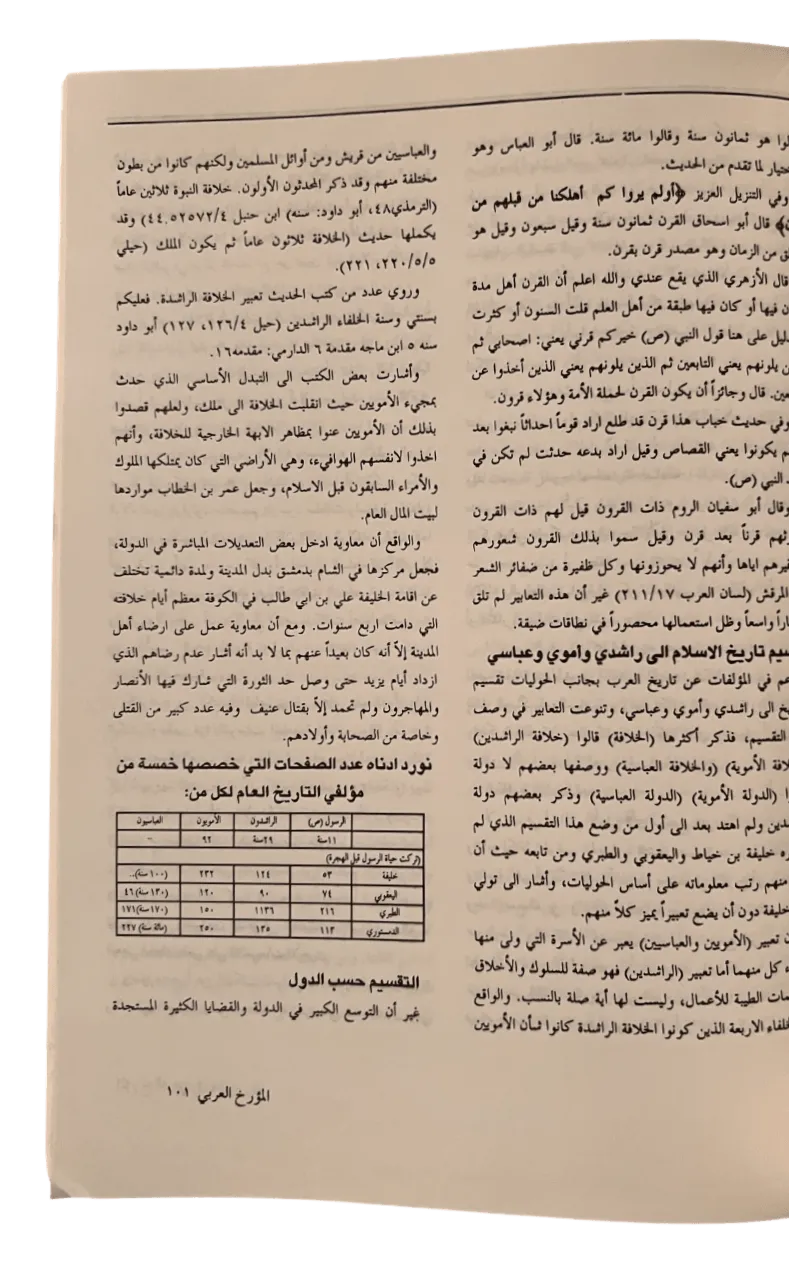 لوا هو ثمانون سنة وقالوا مائة سنة. قال أبو العباس وهو
ختيار لما تقدم من الحديث.
وفي التنزيل العزيز ﴿أولم يروا كم أهلكنا من قبلهم من
ن﴾ قال أبو اسحاق القرن ثمانون سنة وقيل سبعون وقيل هو
لق من الزمان وهو مصدر قرن بقرن.
قال الأزهري الذي يقع عندي والله اعلم أن القرن أهل مدة
ن فيها أو كان فيها طبقة من أهل العلم قلت السنون أو كثرت
دليل على هنا قول النبي (ص) خيركم قرني يعني: اصحابي ثم
ن يلونهم يعني التابعين ثم الذين يلونهم يعني الذين أخذوا عن
عين. قال وجائزاً أن يكون القرن لحملة الأمة وهؤلاء قرون.
وفي حديث خباب هذا قرن قد طلع اراد قوماً احداثاً نبغوا بعد
م يكونوا يعني القصاص وقيل اراد بدعه حدثت لم تكن في
د النبي (ص).
وقال أبو سفيان الروم ذات القرون قيل لهم ذات القرون
رثهم قرناً بعد قرن وقيل سموا بذلك القرون شعورهم
فيرهم اياها وأنهم لا يحوزونها وكل ظفيرة من ضفائر الشعر
المرقش (لسان العرب ٢١١/١٧) غير أن هذه التعابير لم تلق
اراً واسعاً وظل استعمالها محصوراً في نطاقات ضيقة.
سيم تاريخ الاسلام الى راشدي وأموي وعباسي
عم في المؤلفات عن تاريخ العرب بجانب الحوليات تقسيم
يخ الى راشدي وأموي وعباسي، وتنوعت التعابير في وصف
التقسيم، فذكر أكثرها (الخلافة) قالوا (خلافة الراشدين)
لافة الأموية) (والخلافة العباسية) ووصفها بعضهم لا دولة
ا (الدولة الأموية) (الدولة العباسية) وذكر بعضهم دولة
دين ولم اهتد بعد الى أول من وضع هذا التقسيم الذي لم
ره خليفة بن خياط واليعقوبي والطبري ومن تابعه حيث أن
منهم رتب معلوماته على أساس الحوليات، وأشار الى تولي
خليفة دون أن يضع تعبيراً يميز كلاً منهم.
ن تعبير (الأمويين والعباسيين) يعبر عن الأسرة التي ولى منها
ء كل منهما أما تعبير (الراشدين) فهو صفة للسلوك والأخلاق
مات الطيبة للأعمال، وليست لها أية صلة بالنسب. والواقع
لخلفاء الاربعة الذين كونوا الخلافة الراشدة كانوا شأن الأمويين
والعباسيين من قريش ومن أوائل المسلمين ولكنهم كانوا من بطون
مختلفة منهم وقد ذكر المحدثون الأولون. خلافة النبوة ثلاثين عاماً
(الترمذي٤٨، أبو داود: سنه) ابن حنبل ٤٤،٥٢٥٧٢/٤) وقد
يكملها حديث (الخلافة ثلاثون عاماً ثم يكون الملك (حيلي
٢٢٠/٥/٥، ٢٢١).
وروي عدد من كتب الحديث تعبير الخلافة الراشدة. فعليكم
بسنتي وسنة الخلفاء الراشدين (حيل ١٢٦/٤، ١٢٧) أبو داود
سنه ٥ ابن ماجه مقدمة ٦ الدارمي: مقدمه١٦.
وأشارت بعض الكتب الى التبدل الأساسي الذي حدث
بمجيء الأمويين حيث انقلبت الخلافة الى ملك، ولعلهم قصدوا
بذلك أن الأمويين عنوا بمظاهر الابهة الخارجية للخلافة، وأنهم
اخذوا لانفسهم الهوافيء، وهي الأراضي التي كان يمتلكها الملوك
والأمراء السابقون قبل الاسلام، وجعل عمر بن الخطاب مواردها
لبيت المال العام.
والواقع أن معاوية ادخل بعض التعديلات المباشرة في الدولة،
فجعل مركزها في الشام بدمشق بدل المدينة ولمدة دائمية تختلف
عن اقامة الخليفة علي بن ابي طالب في الكوفة معظم أيام خلافته
التي دامت اربع سنوات. ومع أن معاوية عمل على ارضاء أهل
المدينة إلاّ أنه كان بعيداً عنهم بما لا بد أنه أثار عدم رضاهم الذي
ازداد أيام يزيد حتى وصل حد الثورة التي شارك فيها الأنصار
والمهاجرون ولم تخمد إلاّ بقتال عنيف وفيه عدد كبير من القتلى
وخاصة من الصحابة وأولادهم.
نورد ادناه عدد الصفحات التي خصصها خمسة من
مؤلفي التاريخ العام لكل من:
الرسول (ص) الراشدون الأمويون العباسيون
١١سنة ٢٩سنة ٩٢ -
(تركت حياة الرسول قبل الهجرة)
خليفة ٥٣ ١٢٤ ٢٣٢ (١٠٠سنة)..
اليعقوبي ٧٤ ٩٠ ١٢٠ (١٣٠سنة)٤٦
الطبري ٢١٦ ١١٣٦ ١٥٠ (١٧٠سنة)١٧١
الدمستوري ١١٣ ١٣٥ ٢٥٠ (مائة سنة) ٢٢٧
التقسيم حسب الدول
غير أن التوسع الكبير في الدولة والقضايا الكثيرة المستجدة
المؤرخ العربي ١٠١